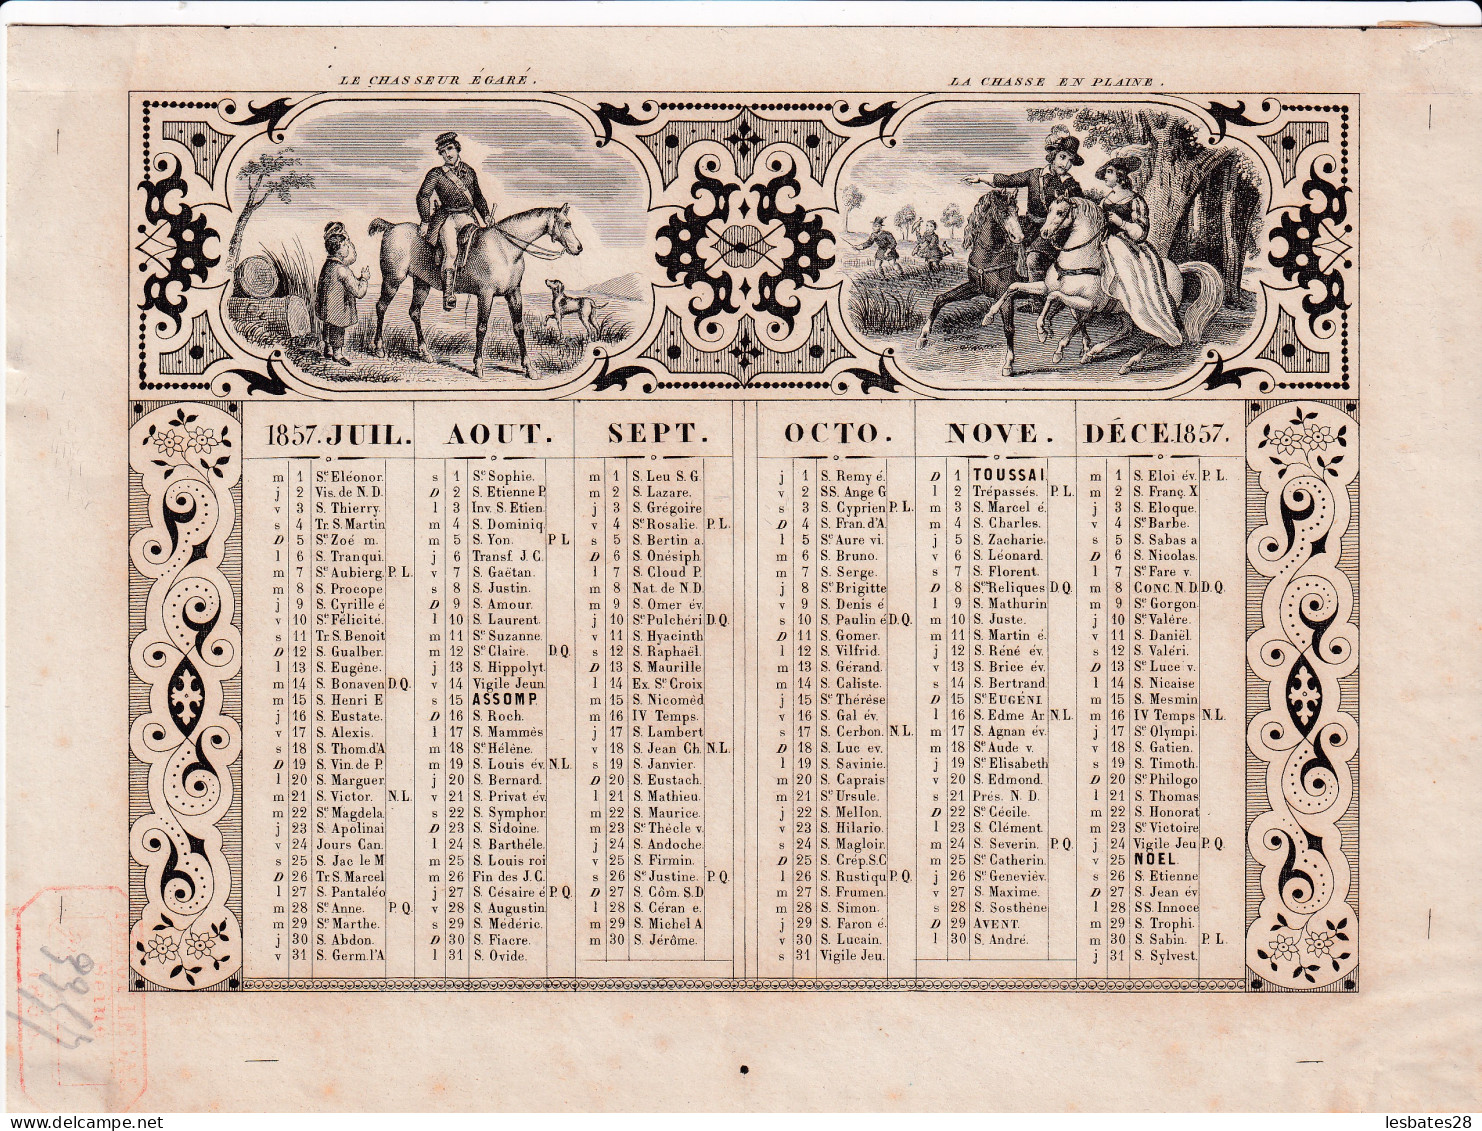 LE CHASSEUR ÉGARÉ.
LA CHASSE EN PLAINE.
1857. JUIL.
m 1 Ste Eléonor.
j 2 Vis. de N. D.
v 3 S. Thierry.
s 4 Tr. S. Martin
D 5 Ste Zoé m.
l 6 S. Tranqui.
m 7 Ste Aubierg. P. L.
m 8 S. Procope
j 9 S. Cyrille é
v 10 Ste Félicité.
s 11 Tr. S. Benoit
D 12 S. Gualber.
l 13 S. Eugène.
m 14 S. Bonaven D. Q.
m 15 S. Henri E
j 16 S. Eustate.
v 17 S. Alexis.
s 18 S. Thom. d'A
D 19 S. Vin. de P.
l 20 S. Marguer.
m 21 S. Victor. N. L.
m 22 Ste Magdela.
j 23 S. Apolinai
v 24 Jours Can.
s 25 S. Jac le M
D 26 Tr. S. Marcel
l 27 S. Pantaléo
m 28 Ste Anne. P. Q.
m 29 Ste Marthe.
j 30 S. Abdon.
v 31 S. Germ. l'A
AOUT.
s 1 Ste Sophie.
D 2 S. Etienne P.
l 3 Inv. S. Etien.
m 4 S. Dominiq.
m 5 S. Yon. P L
j 6 Transf. J. C.
v 7 S. Gaëtan.
s 8 S. Justin.
D 9 S. Amour.
l 10 S. Laurent.
m 11 Ste Suzanne.
m 12 Ste Claire. D. Q.
j 13 S. Hippolyt.
v 14 Vigile Jeun.
s 15 ASSOMP.
D 16 S. Roch.
l 17 S. Mammès
m 18 Ste Hélène.
m 19 S. Louis év. N. L.
j 20 S. Bernard.
v 21 S. Privat év.
s 22 S. Symphor.
D 23 S. Sidoine.
l 24 S. Barthéle.
m 25 S. Louis roi
m 26 Fin des J. C.
j 27 S. Césaire é P. Q.
v 28 S. Augustin.
s 29 S. Médéric.
D 30 S. Fiacre.
l 31 S. Ovide.
SEPT.
m 1 S. Leu S. G.
m 2 S. Lazare.
j 3 S. Grégoire
v 4 Ste Rosalie. P. L.
s 5 S. Bertin a.
D 6 S. Onésiph.
l 7 S. Cloud P.
m 8 Nat. de N. D.
m 9 S. Omer év.
j 10 Ste Pulchéri D. Q.
v 11 S. Hyacinth
s 12 S. Raphaël.
D 13 S. Maurille
l 14 Ex. Ste Croix
m 15 S. Nicoméd
m 16 IV Temps.
j 17 S. Lambert
v 18 S. Jean Ch. N. L.
s 19 S. Janvier.
D 20 S. Eustach.
l 21 S. Mathieu.
m 22 S. Maurice.
m 23 Ste Thècle v.
j 24 S. Andoche.
v 25 S. Firmin.
s 26 Ste Justine. P. Q.
D 27 S. Côm. S. D
l 28 S. Céran e.
m 29 S. Michel A
m 30 S. Jérôme.
OCTO.
j 1 S. Remy é.
v 2 SS. Ange G
s 3 S. Cyprien P. L.
D 4 S. Fran. d'A.
l 5 Ste Aure vi.
m 6 S. Bruno.
m 7 S. Serge.
j 8 Ste Brigitte
v 9 S. Denis é
s 10 S. Paulin é D. Q.
D 11 S. Gomer.
l 12 S. Vilfrid.
m 13 S. Gérand.
m 14 S. Caliste.
j 15 Ste Thérèse
v 16 S. Gal év.
s 17 S. Cerbon. N. L.
D 18 S. Luc ev.
l 19 S. Savinie.
m 20 S. Caprais
m 21 Ste Ursule.
j 22 S. Mellon.
v 23 S. Hilario.
s 24 S. Magloir.
D 25 S. Crép. S. C
l 26 S. Rustiqu P. Q.
m 27 S. Frumen.
m 28 S. Simon.
j 29 S. Faron é.
v 30 S. Lucain.
s 31 Vigile Jeu.
NOVE.
D 1 TOUSSAI.
l 2 Trépassés. P. L.
m 3 S. Marcel é.
m 4 S. Charles.
j 5 S. Zacharie.
v 6 S. Léonard.
s 7 S. Florent.
D 8 Stes Reliques D. Q.
l 9 S. Mathurin
m 10 S. Juste.
m 11 S. Martin é.
j 12 S. Réné év.
v 13 S. Brice év.
s 14 S. Bertrand.
D 15 Ste EUGÉNI.
l 16 S. Edme Ar. N. L.
m 17 S. Agnan év.
m 18 Ste Aude v.
j 19 Ste Elisabeth
v 20 S. Edmond.
s 21 Prés. N. D.
D 22 Ste Cécile.
l 23 S. Clément.
m 24 S. Severin. P. Q.
m 25 Ste Catherin.
j 26 Ste Geneviév.
v 27 S. Maxime.
s 28 S. Sosthène
D 29 AVENT.
l 30 S. André.
DÉCE. 1857.
m 1 S. Eloi év. P. L.
m 2 S. Franç. X
j 3 S. Eloque.
v 4 Ste Barbe.
s 5 S. Sabas a
D 6 S. Nicolas.
l 7 Ste Fare v.
m 8 CONC. N. D. D. Q.
m 9 Ste Gorgon.
j 10 Ste Valère.
v 11 S. Daniël.
s 12 S. Valéri.
D 13 Ste Luce v.
l 14 S. Nicaise
m 15 S. Mesmin
m 16 IV Temps N. L.
j 17 Ste Olympi.
v 18 S. Gatien.
s 19 S. Timoth.
D 20 Ste Philogo
l 21 S. Thomas
m 22 S. Honorat
m 23 Ste Victoire
j 24 Vigile Jeu P. Q.
v 25 NOEL.
s 26 S. Etienne
D 27 S. Jean év
l 28 SS. Innoce
m 29 S. Trophi.
m 30 S. Sabin. P. L.
j 31 S. Sylvest.
lesbates28